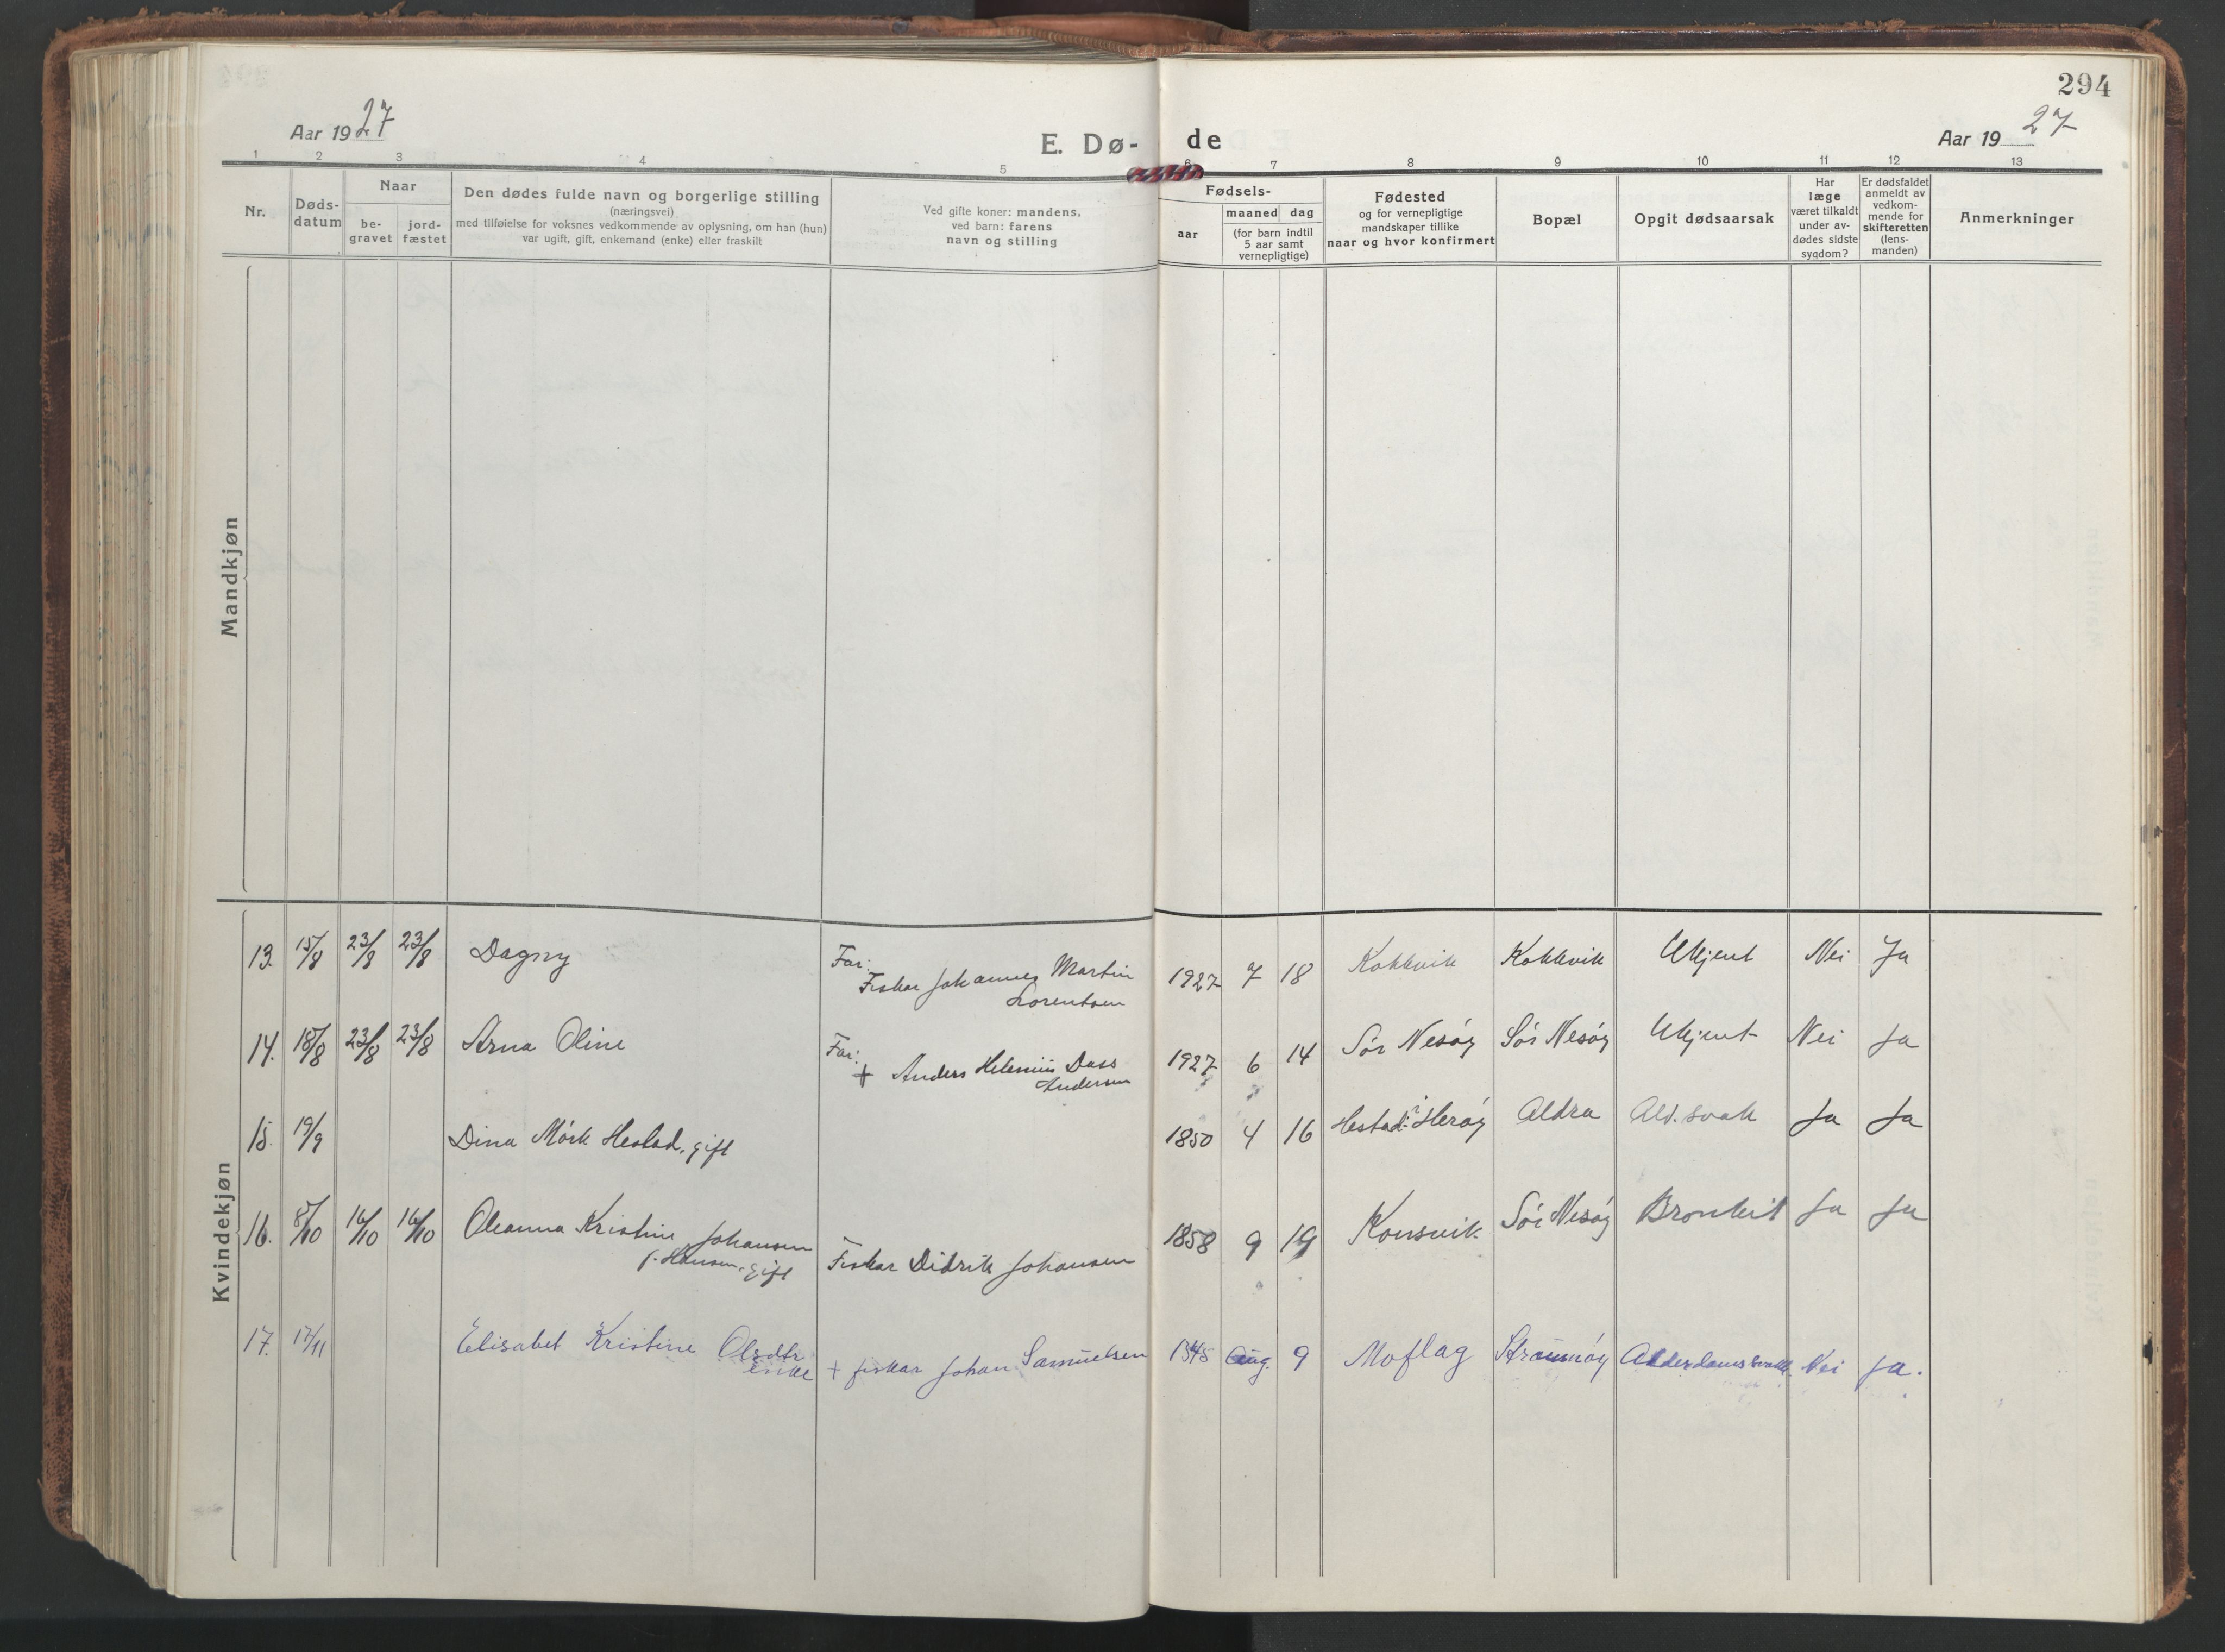 294
Aar 1927
E. Dø-
de
Aar 1927
1 2 3 4 5 6 7 8 9 10 11 12 13
Nr.
Døds-
datum
Naar
be-
gravet
jord-
fæstet
Den dødes fulde navn og borgerlige stilling
(næringsvei)
med tilføielse for voksnes vedkommende av oplysning, om han (hun)
var ugift, gift, enkemand (enke) eller fraskilt
Ved gifte koner: mandens,
ved barn: farens
navn og stilling
Fødsels-
aar
maaned dag
(for barn indtil
5 aar samt
vernepligtige)
Fødested
og for vernepligtige
mandskaper tillike
naar og hvor konfirmert
Bopæl
Opgit dødsaarsak
Har
læge
været tilkaldt
under av-
dødes sidste
sygdom?
Er dødsfaldet
anmeldt av
vedkom-
mende for
skifteretten
(lens-
manden)
Anmerkninger
Mandkjøn
Kvindekjøn
13. 15/8 23/8 23/8 Dagny Far:
Fiskar Johannes Martin
Lorentsen
1927 7 18 Kokkvik Kokkvik Ukjent Nei Ja
14. 18/8 23/8 23/8 Arna Oline Far:
+ Anders Dass
Andersen
1927 6 14 Sör Nesöy Sör Nesöy Ukjent Nei Ja
15. 19/9 Dina Mörk Hestad, gift
1850 4 16 Hestad i Heröy Aldra Ald.svak Ja Ja
16. 8/10 16/10 16/10 Oleanna Kristine Johansen
f. Hansen, gift
Fiskar Didrik Johansen
1858 9 19 Konsvik Sör Nesöy Bronkit Ja Ja
17. 17/11 Elisabet Kristine Olsdtr
enke
+ fiskar Johan Samuelsen
1845 Aug. 9 Moflag Straumöy Alderdomssvakk. Nei Ja.